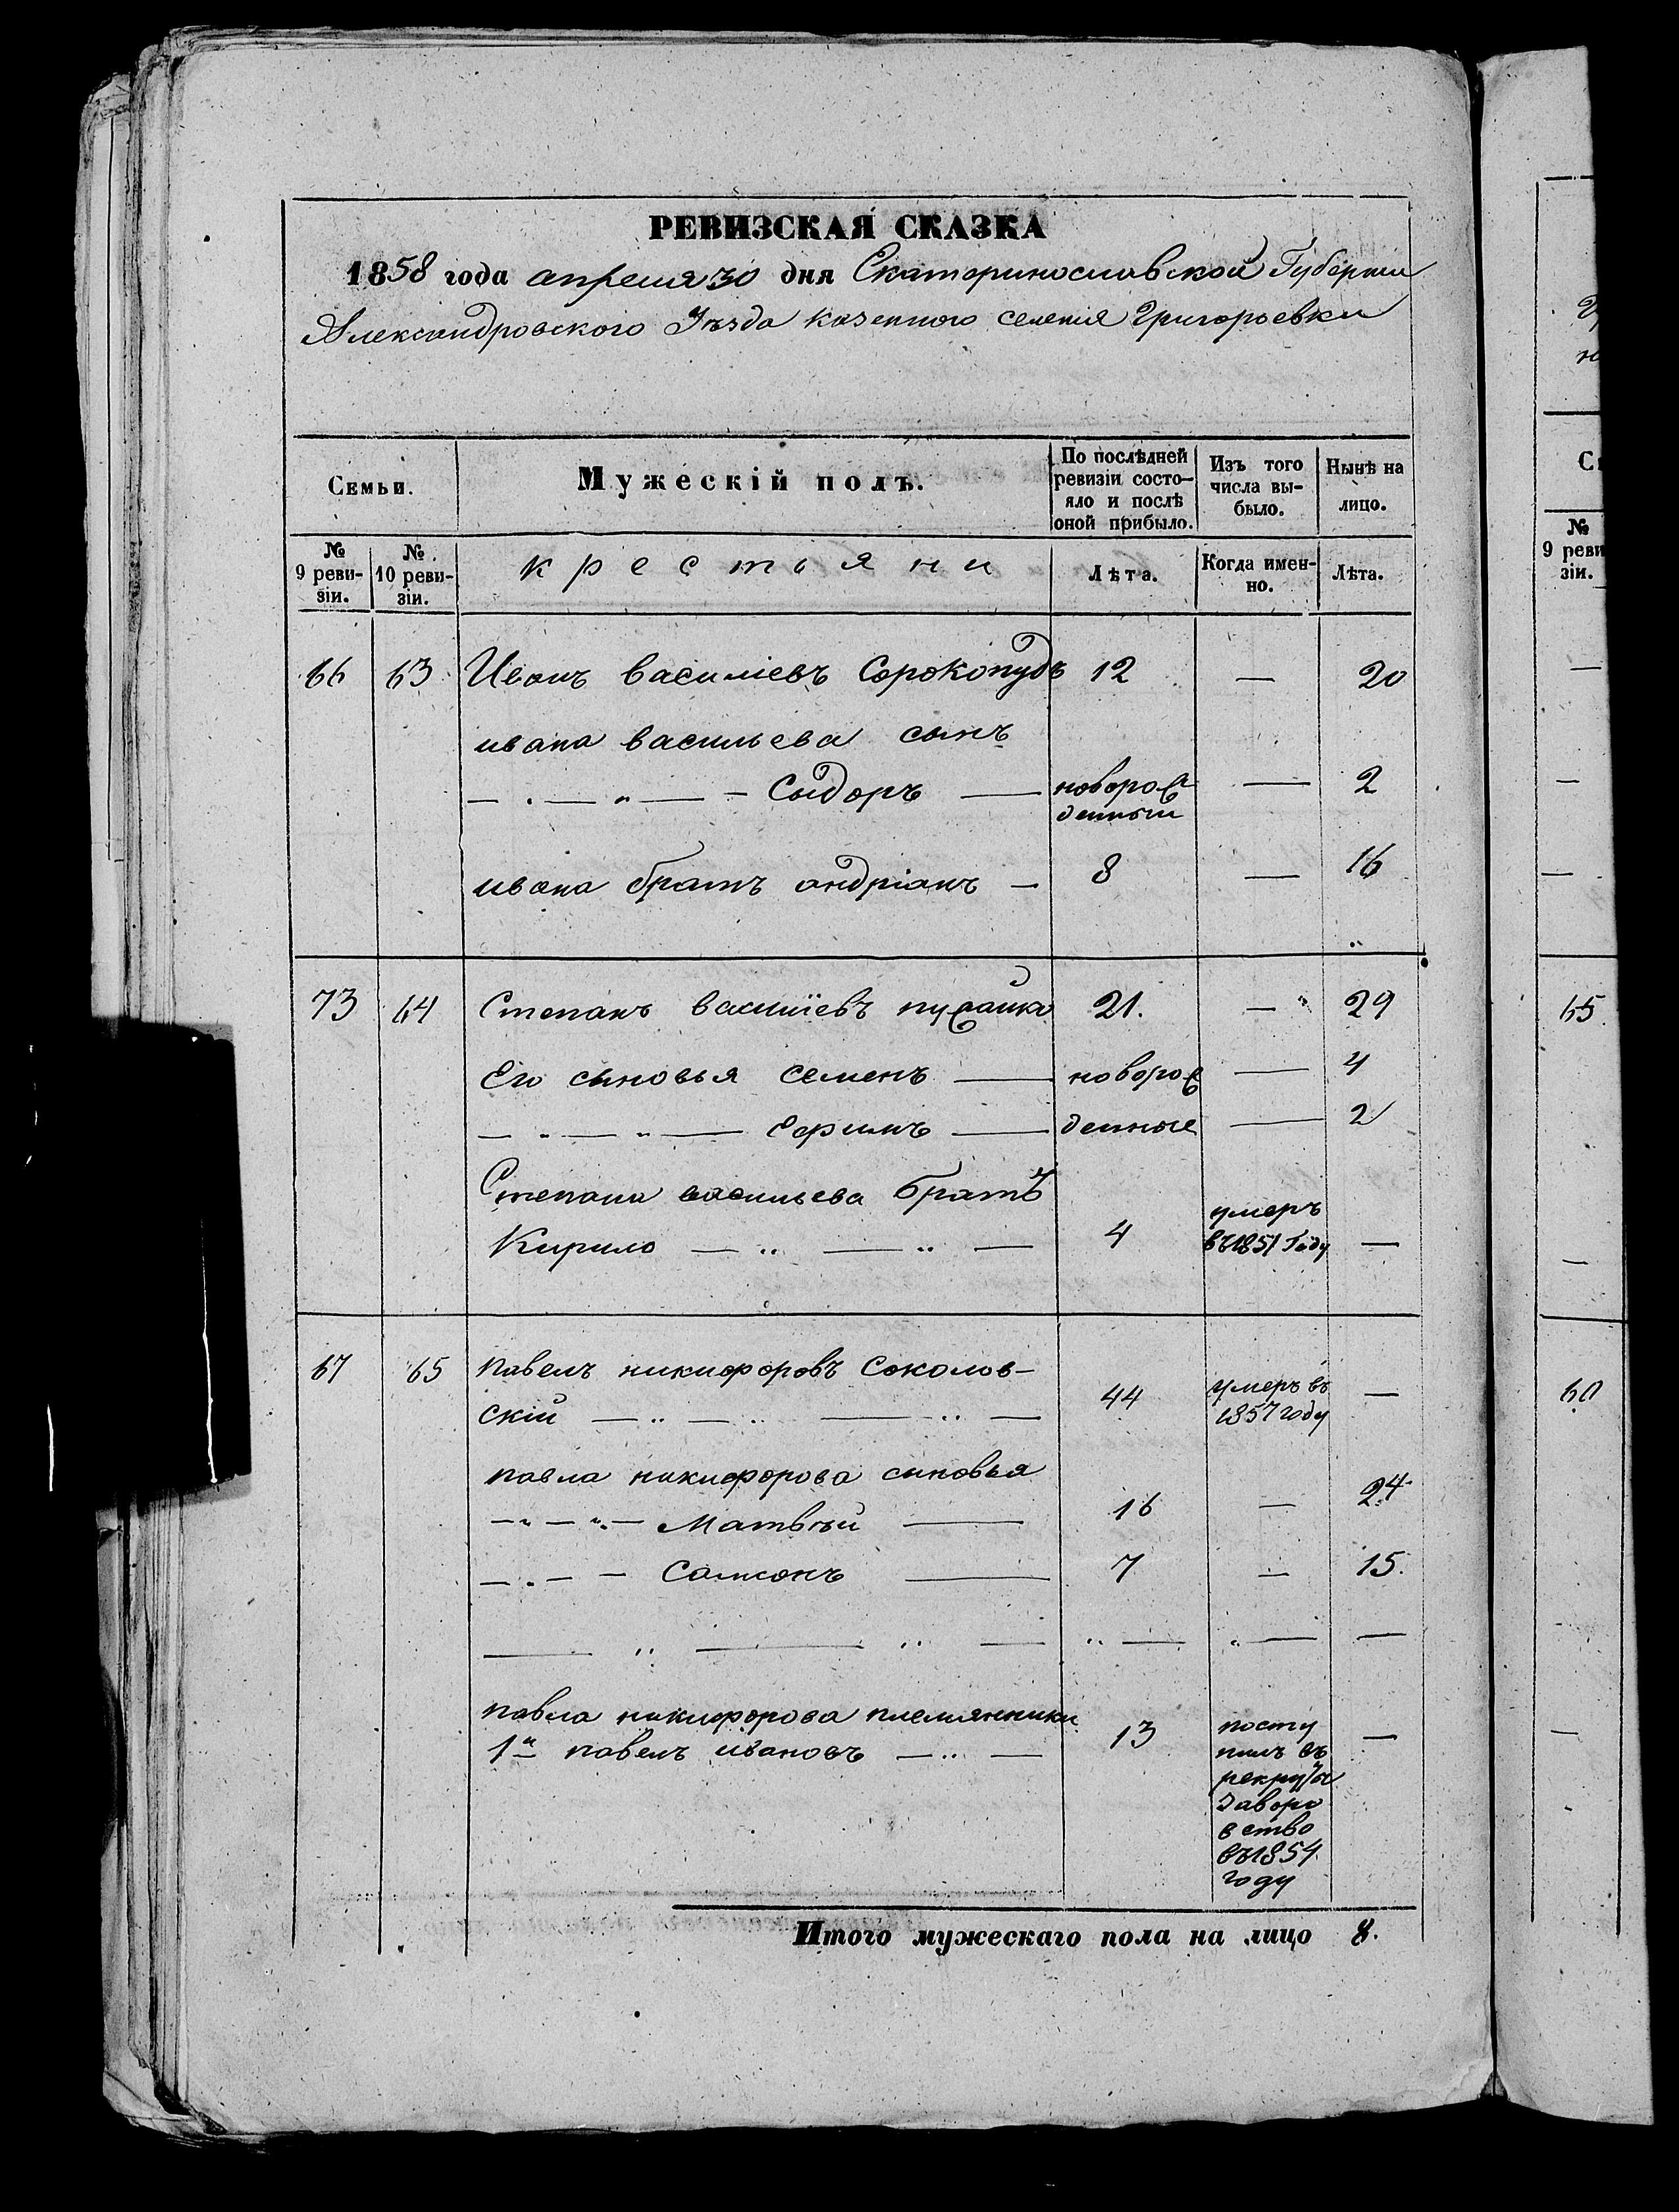 РЕВИЗСКАЯ СКАЗКА
1858 года апреля 30 дня Екатеринославской Губернии
Александровского Уѣзда казенного селенія Григорьевки
Семьи.
Мужескій полъ.
По послѣдней ревизіи состо-
яло и послѣ
оной прибыло.
Изъ того
числа вы-
было.
Нынѣ на
лицо.
№ 9 реви-
зіи.
№ 10 реви-
зіи.
крестьяни
Лѣта.
Когда имен-
но.
Лѣта.
66 63 Иванъ василіевъ Сорокопудъ 12 — 20
ивана васильева сынъ
— . — „ — — Сыдоръ — новорож
денный — 2
ивана братъ андріанъ — 8 — 16
73 64 Степанъ василіевъ 21. — 29
Его сыновья семенъ — новорож — 4
— „ — „ — Ефимъ — денные — 2
Степана васильева братъ
Кирило — „ — „ — 4 умеръ
въ 1851 Году —
67 65 павелъ никифоровъ Соколов-
скій — „ — „ — „ — 44 умеръ въ
1857 году —
павла никифорова сыновья
— „ — „ — Матвѣй — 16 — 24
— . — — Самсонъ — 7 — 15.
— „ — „ — „ — „ — —
павла никифорова племянники
1й павелъ ивановъ — „ — 13 —
посту
пилъ въ
рекруты
заворо
вство
въ 1854
году
Итого мужескаго пола на лицо 8.
С
№
9 реви
зіи.
65
60